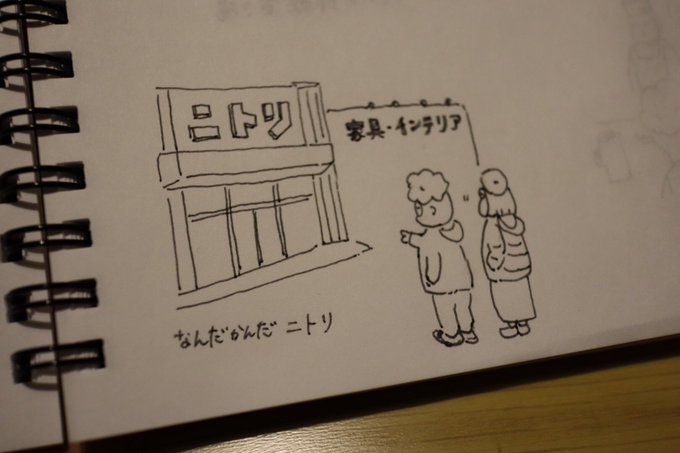 ニトリ
家具・インテリア
なんだかんだ ニトリ